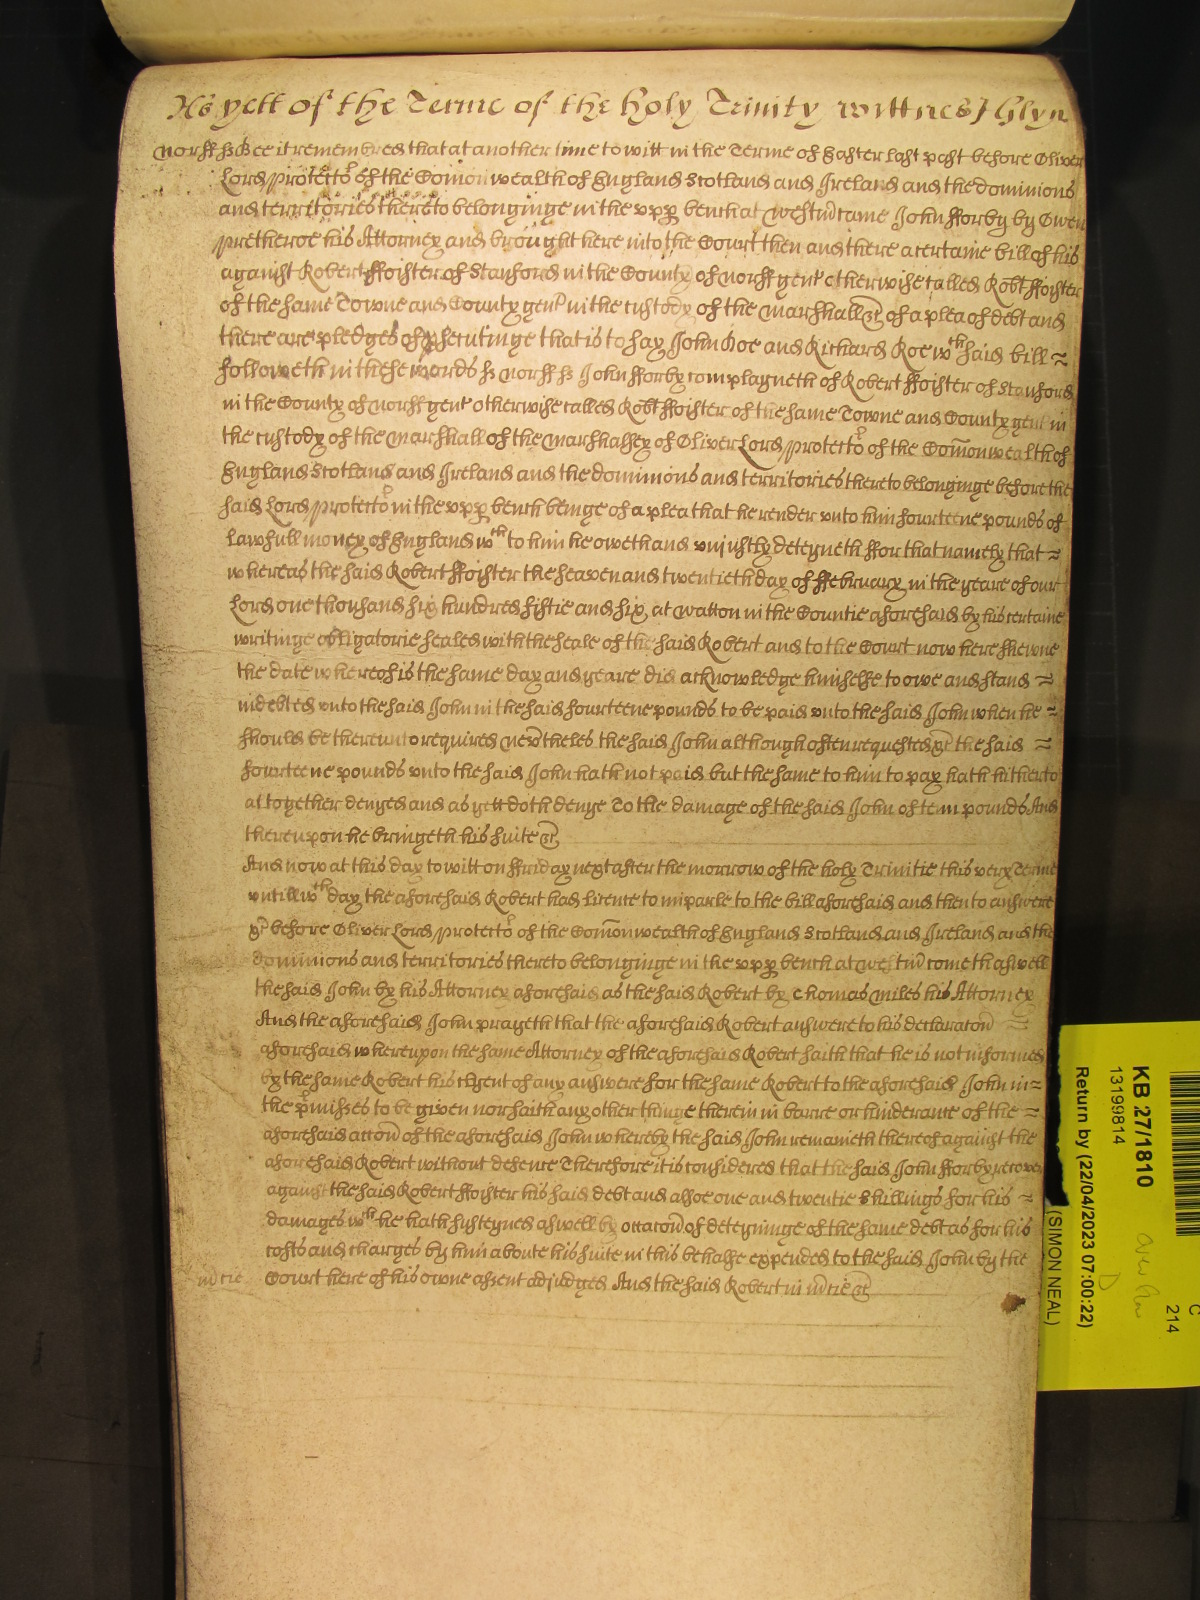 As yett of the Terme of the holy Trinity wittnes J Glyn
Norff ss Bee it remembred that at another time to witt in the Terme of Easter last past before Oliver
Lord Protector of the Comonwealth of England Scotland and Ireland and the dominions
and territories thereto belonginge in the vpp bench at Westm came John fforby by Owen
Pretheroe his Attorney and brought here into the Court then and there a certaine bill of his
against Robert ffoister of Stanford in the County of Norff gent otherwise called Robt ffoister
of the same Towne and County gent in the custody of the Marshall &c of a plea of debt and
there are pledges of psecutinge that is to say John Doe and Richard Roe wch said bill
followeth in these words ss Norff ss John fforby complayneth of Robert ffoister of Stanford
in the County of Norff gent otherwise called Robt ffoister of the same Towne and County gent in
the custody of the Marshall of the Marshalsey of Oliver Lord Protector of the Comonwealth of
England Scotland and Ireland and the dominions and territories thereto belonginge before the
said Lord Protector in the vpp bench beinge of a plea that he render vnto him fourteene pounds of
lawfull money of England wch to him he oweth and vniustly deteyneth ffor that namely that
whereas the said Robert ffoister the seaven and twentieth day of ffebruary in the yeare of our
Lord one thousand six hundred fiftie and six at Watton in the Countie aforesaid by his certaine
writinge obligatorie sealed with the seale of the said Robert and to the Court now here shewne
the date whereof is the same day and yeare did acknowledge himselfe to owe and stand
indebted vnto the said John in the said fourteene pounds to be paid vnto the said John when he
should be thereunto required nevtheles the said John although often requested &c the said
fourteene pounds vnto the said John hath not paid but the same to him to pay hath hitherto
altogether denyed and as yett doth denye To the damage of the said John of tenn pounds And
thereupon he bringeth his suite &c
And now at this day to witt on ffriday next after the morrow of the holy Trinitie this very Terme
vntill wch day the aforesaid Robert had licence to imparle to the bill aforesaid and then to answere
&c before Oliver Lord Protector of the Comonwealth of England Scotland and Ireland and the
dominions and territories thereto belonginge in the vpp bench at Westm cometh aswell
the said John by his Attorney aforesaid as the said Robert by Thomas Miles his Attorney
And the aforesaid John prayeth that the aforesaid Robert answere to his declaracon
aforesaid whereupon the same Attorney of the aforesaid Robert saith that he is not informed
by the same Robert his Clyent of any answere for the same Robert to the aforesaid John in
the pmisses to be given nor saith any other thinge therein in barre or hinderance of the
aforesaid accon of the aforesaid John whereby the said John remaineth thereof against the
aforesaid Robert without defence Therefore it is considered that the said John fforby recover
against the said Robert ffoister his said debt and alsoe one and twentie shillings for his
damages wch he hath susteyned aswell by occacon of deteyninge of the same debt as for his
costs and charges by him aboute his suite in this behalfe expended to the said John by the
Court here of his owne assent adjudged And the said Robert in mcie &c
mcie
KB 27/1810
13199814
Return by (22/04/2023 07:00:22)
(SIMON NEAL)
C
214
D